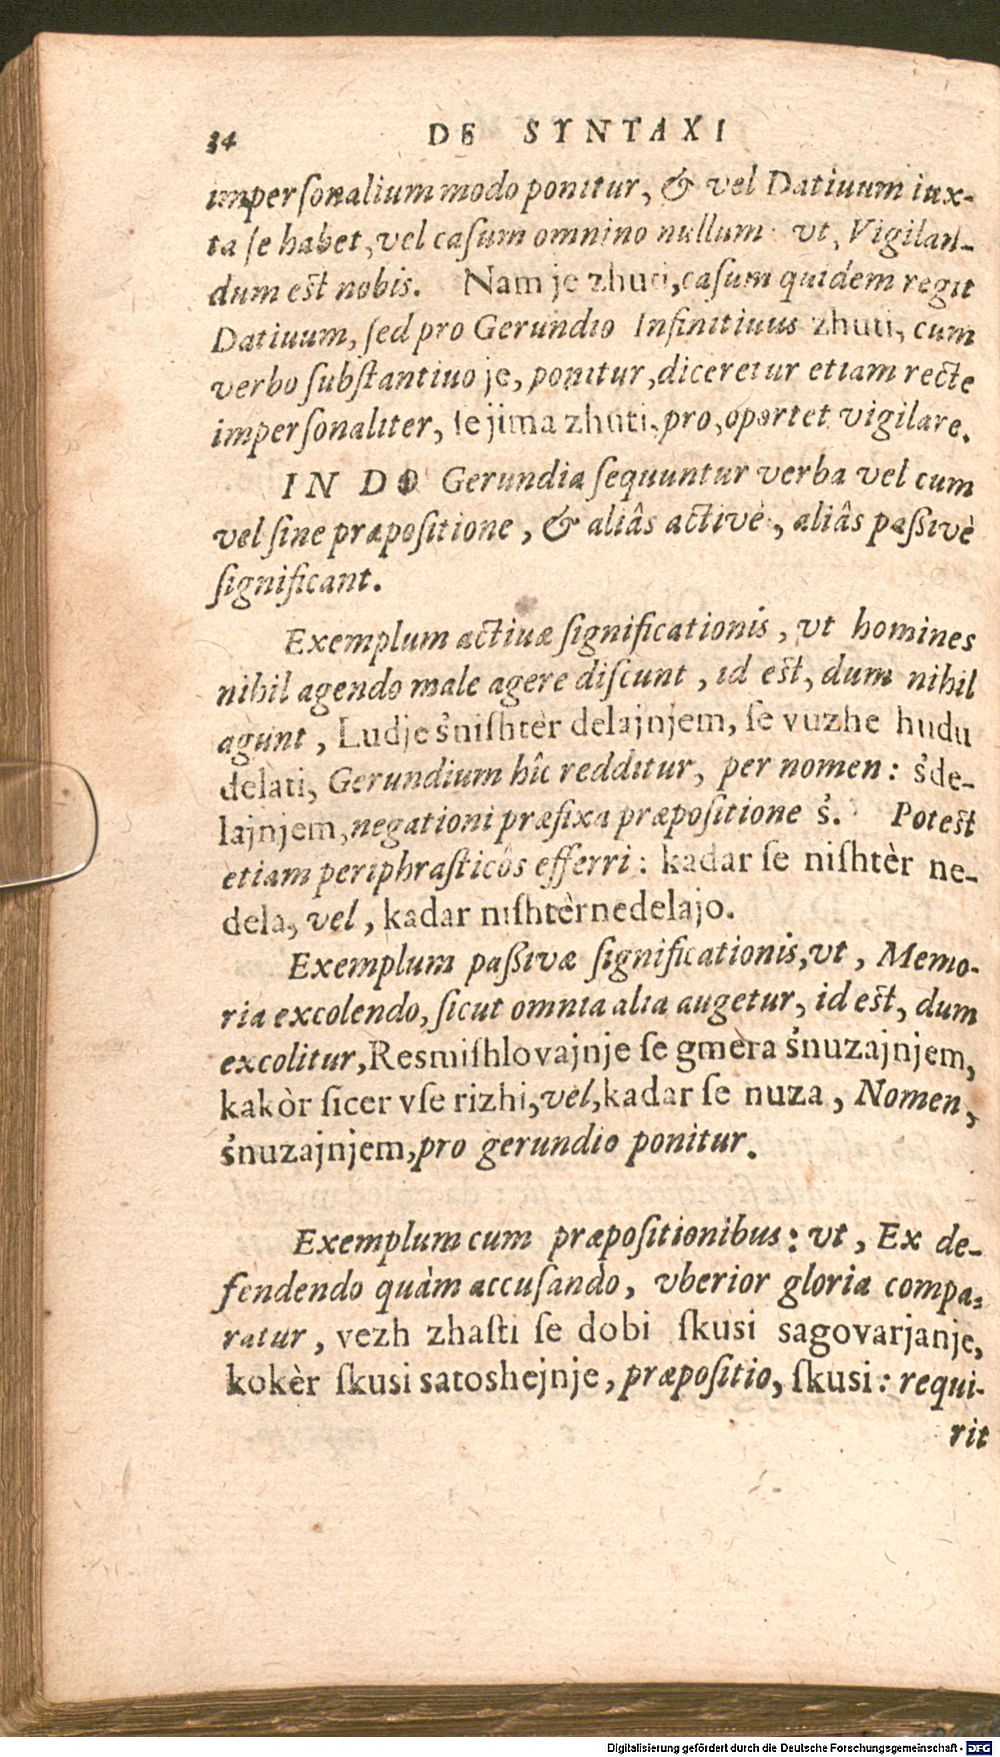 34 DE SYNTAXI
imperſonalium modo ponitur, & vel Datiuum iux-
ta ſe habet, vel caſum omnino nullum: vt, Vigilan-
dum eſt nobis. Nam je zhuti, caſum quidem regit
Datiuum, ſed pro Gerundio Infinitiuus zhuti, cum
verbo ſubſtantiuo je, ponitur, diceretur etiam recte
imperſonaliter, ſe jima zhuti, pro, oportet vigilare.
IN DO Gerundia ſequuntur verba vel cum
vel ſine præpoſitione, & aliâs activè, aliâs paſſivè
ſignificant.
Exemplum actiuæ ſignificationis, vt homines
nihil agendo male agere diſcunt, id eſt, dum nihil
agunt, Ludje s̓niſhtèr delajnjem, ſe vuzhe hudu
delati, Gerundium hîc redditur, per nomen: s̓de-
lajnjem, negationi præfixa præpoſitione s̓. Poteſt
etiam periphraſticôs efferri: kadar ſe niſhtèr ne-
dela, vel, kadar niſhtèrnedelajo.
Exemplum paſſivæ ſignificationis, vt, Memo-
ria excolendo, ſicut omnia alia augetur, id eſt, dum
excolitur, Resmiſhlovajnje ſe gmèra s̓nuzajnjem,
kakòr ſicer vſe rizhi, vel, kadar ſe nuza, Nomen,
s̓nuzajnjem, pro gerundio ponitur.
Exemplum cum præpoſitionibus: vt, Ex de-
fendendo quàm accuſando, vberior gloria compa-
ratur, vezh zhaſti ſe dobi ſkusi sagovarjanje,
kokèr ſkusi satoshejnje, præpoſitio, ſkusi: requi-
rit
Digitalisierung gefördert durch die Deutsche Forschungsgemeinschaft - DFG